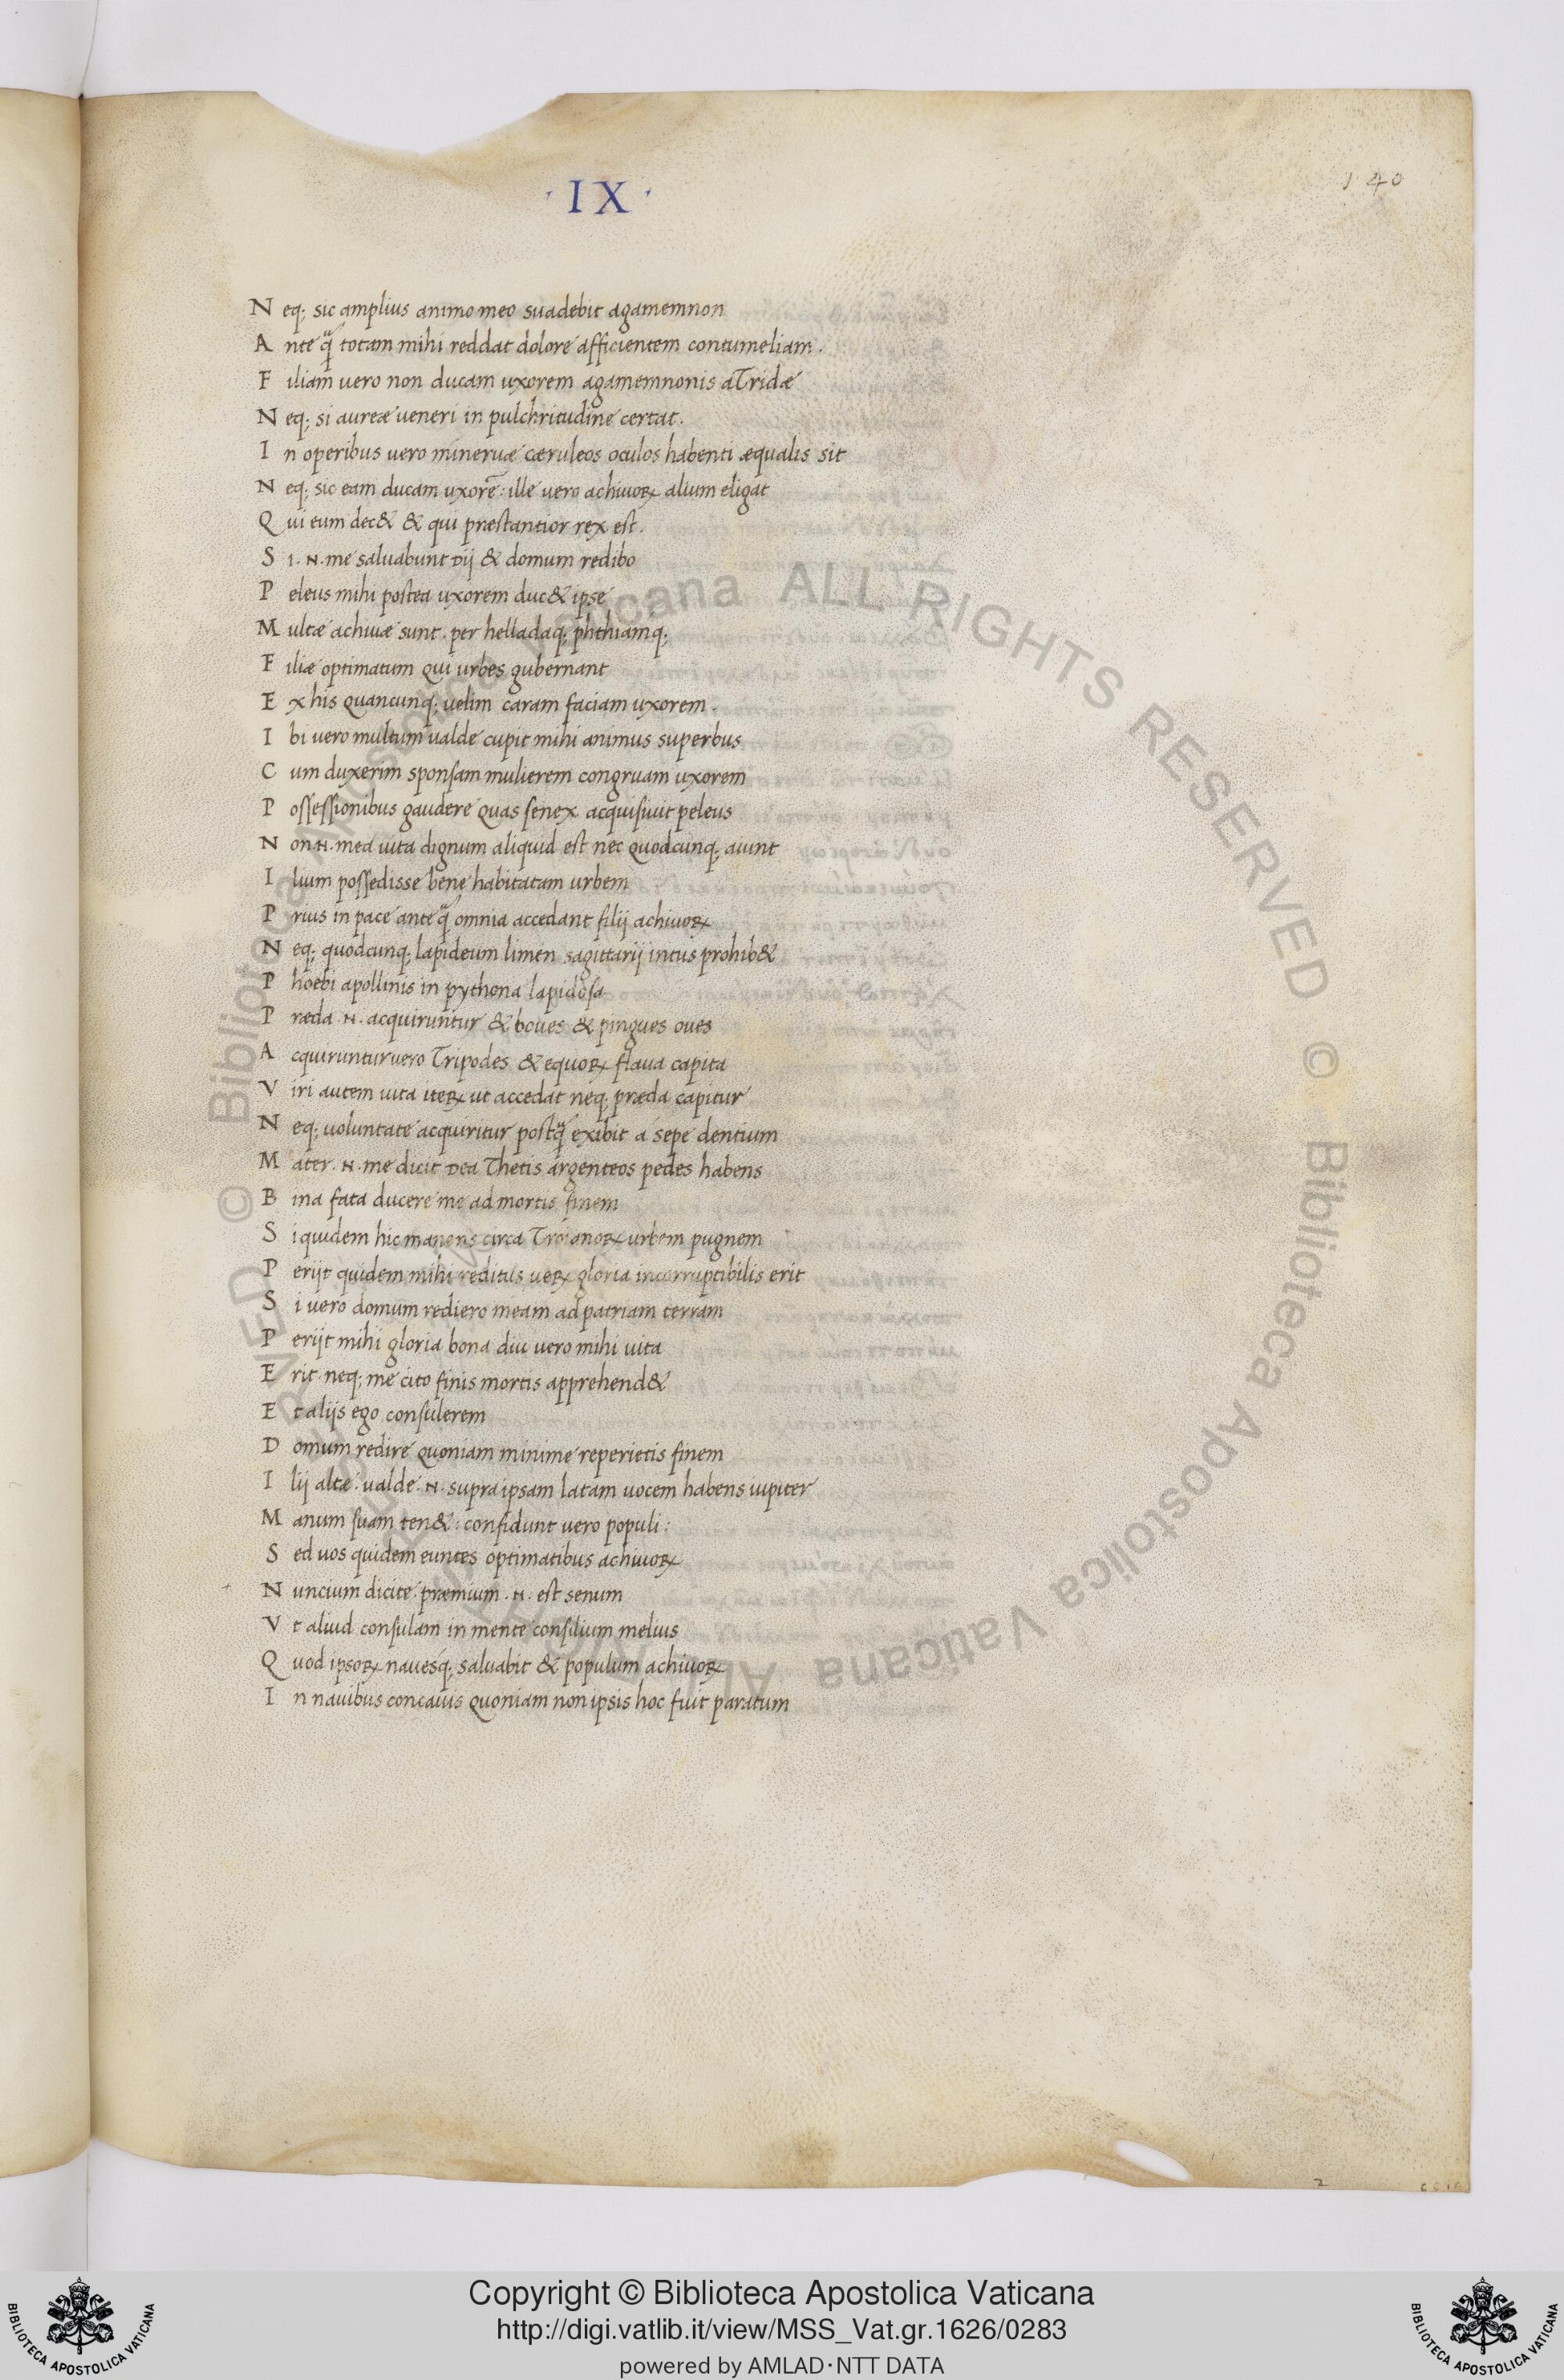 · IX ·
1 40
N eq; sic amplius animo meo suadebit agamemnon
A nte q̃ totam mihi reddat dolore afficientem contumeliam.
F iliam uero non ducam uxorem agamemnonis aTridæ
N eq; si aureæ ueneri in pulchritudine certat.
I n operibus uero mineruæ cæruleos oculos habenti æqualis sit
N eq; sic eam ducam uxorẽ: ille uero achiuoꝝ alium eligat
Q ui eum dec& & qui præstantior rex est.
S i .N. me saluabunt Dij & domum redibo
P eleus mihi postea uxorem duc& ipse
M ultæ achiuæ sunt. per helladaq; phthiamq;
F iliæ optimatum qui urbes gubernant
E x his quancunq; uelim caram faciam uxorem.
I bi uero multum ualde cupit mihi animus superbus
C um duxerim sponsam mulierem congruam uxorem
P ossessionibus gaudere quas senex acquisiuit peleus
N on .N. mea uita dignum aliquid est nec quodcunq; aiunt
I lium possedisse bene habitatam urbem
P rius in pace ante q̃ omnia accedant filij achiuoꝝ
N eq; quodcunq; lapideum limen sagittarij intus prohib&
P hoebi apollinis in pythona lapidosa
P ræda .N. acquiruntur & boues & pingues oues
A cquiruntur uero Tripodes & equoꝝ flaua capita
V iri autem uita iteꝝ ut accedat neq; præda capitur
N eq; uoluntate acquiritur postq̃ exibit a sepe dentium
M ater .N. me dicit Dea Thetis argenteos pedes habens
B ina fata ducere me ad mortis finem
S i quidem hic manens circa Troianoꝝ urbem pugnem
P erijt quidem mihi reditus ueꝝ gloria incorruptibilis erit
S i uero domum rediero meam ad patriam terram
P erijt mihi gloria bona diu uero mihi uita
E rit. neq; me cito finis mortis apprehend&
E t alijs ego consulerem
D omum redire quoniam minime reperietis finem
I lij altæ. ualde .N. supra ipsam latam uocem habens iupiter
M anum suam ten&: confidunt uero populi:
S ed uos quidem euntes optimatibus achiuoꝝ
N uncium dicite. præmium .N. est senum
V t aliud consulam in mente consilium melius
Q uod ipsoꝝ nauesq; saluabit & populum achiuoꝝ
I n nauibus concauis quoniam non ipsis hoc fuit paratum
2
© Biblioteca Apostolica Vaticana ALL RIGHTS RESERVED
© Biblioteca Apostolica Vaticana ALL RIGHTS RESERVED
Copyright © Biblioteca Apostolica Vaticana
http://digi.vatlib.it/view/MSS_Vat.gr.1626/0283
powered by AMLAD·NTT DATA
BIBLIOTECA APOSTOLICA VATICANA
BIBLIOTECA APOSTOLICA VATICANA